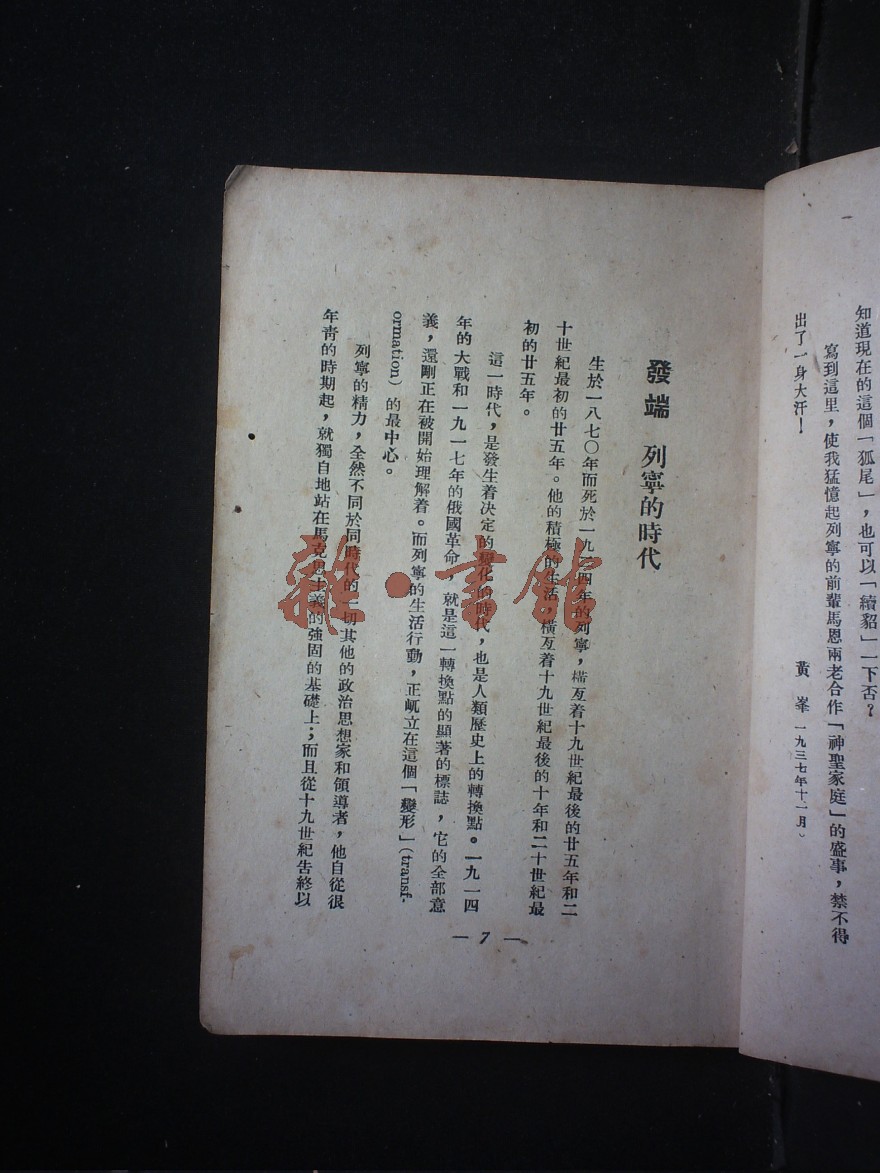 知道現在的這個「狐尾」，也可以「續貂」一下否？
寫到這里，使我猛憶起列寧的前輩馬恩兩老合作「神聖家庭」的盛事，禁不得
出了一身大汗！
黃峯 一九三七年十一月）
發端 列寧的時代
生於一八七〇年而死於一九二四年的列寧，橫亙着十九世紀最後的廿五年和二
十世紀最初的廿五年。他的積極的生活，橫亙着十九世紀最後的十年和二十世紀最
初的廿五年。
這一時代，是發生着決定的變化的時代，也是人類歷史上的轉換點。一九一四
年的大戰和一九一七年的俄國革命，就是這一轉換點的顯著的標誌，它的全部意
義，還剛正在被開始理解着。而列寧的生活行動，正屹立在這個「變形」(transf-
ormation) 的最中心。
列寧的精力，全然不同於同時代的一切其他的政治思想家和領導者，他自從很
年靑的時期起，就獨自地站在馬克思主義的強固的基礎上；而且從十九世紀吿終以
— 7 —
雜·書館